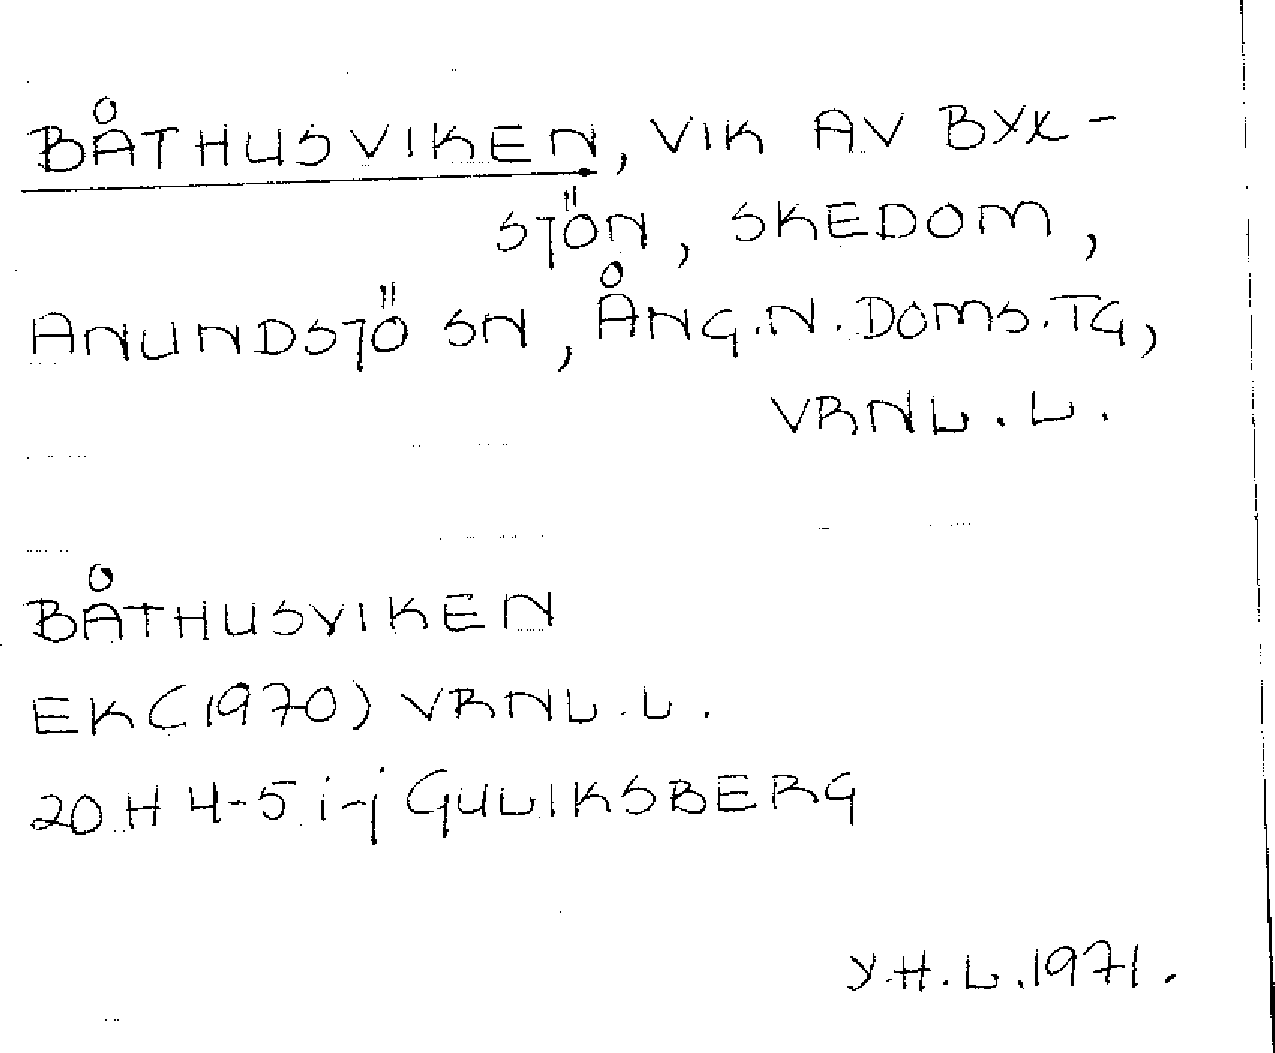 BÅTHUSVIKEN, VIK AV BYK-
SJÖN, SKEDOM,
ANUNDSJÖ SN, ÅNG.N.DOMS.TG,
VRNL.L.
BÅTHUSVIKEN
EK(1970) VRNL.L.
20 H 4-5 i-j GULIKSBERG
Y.H.L.1971.